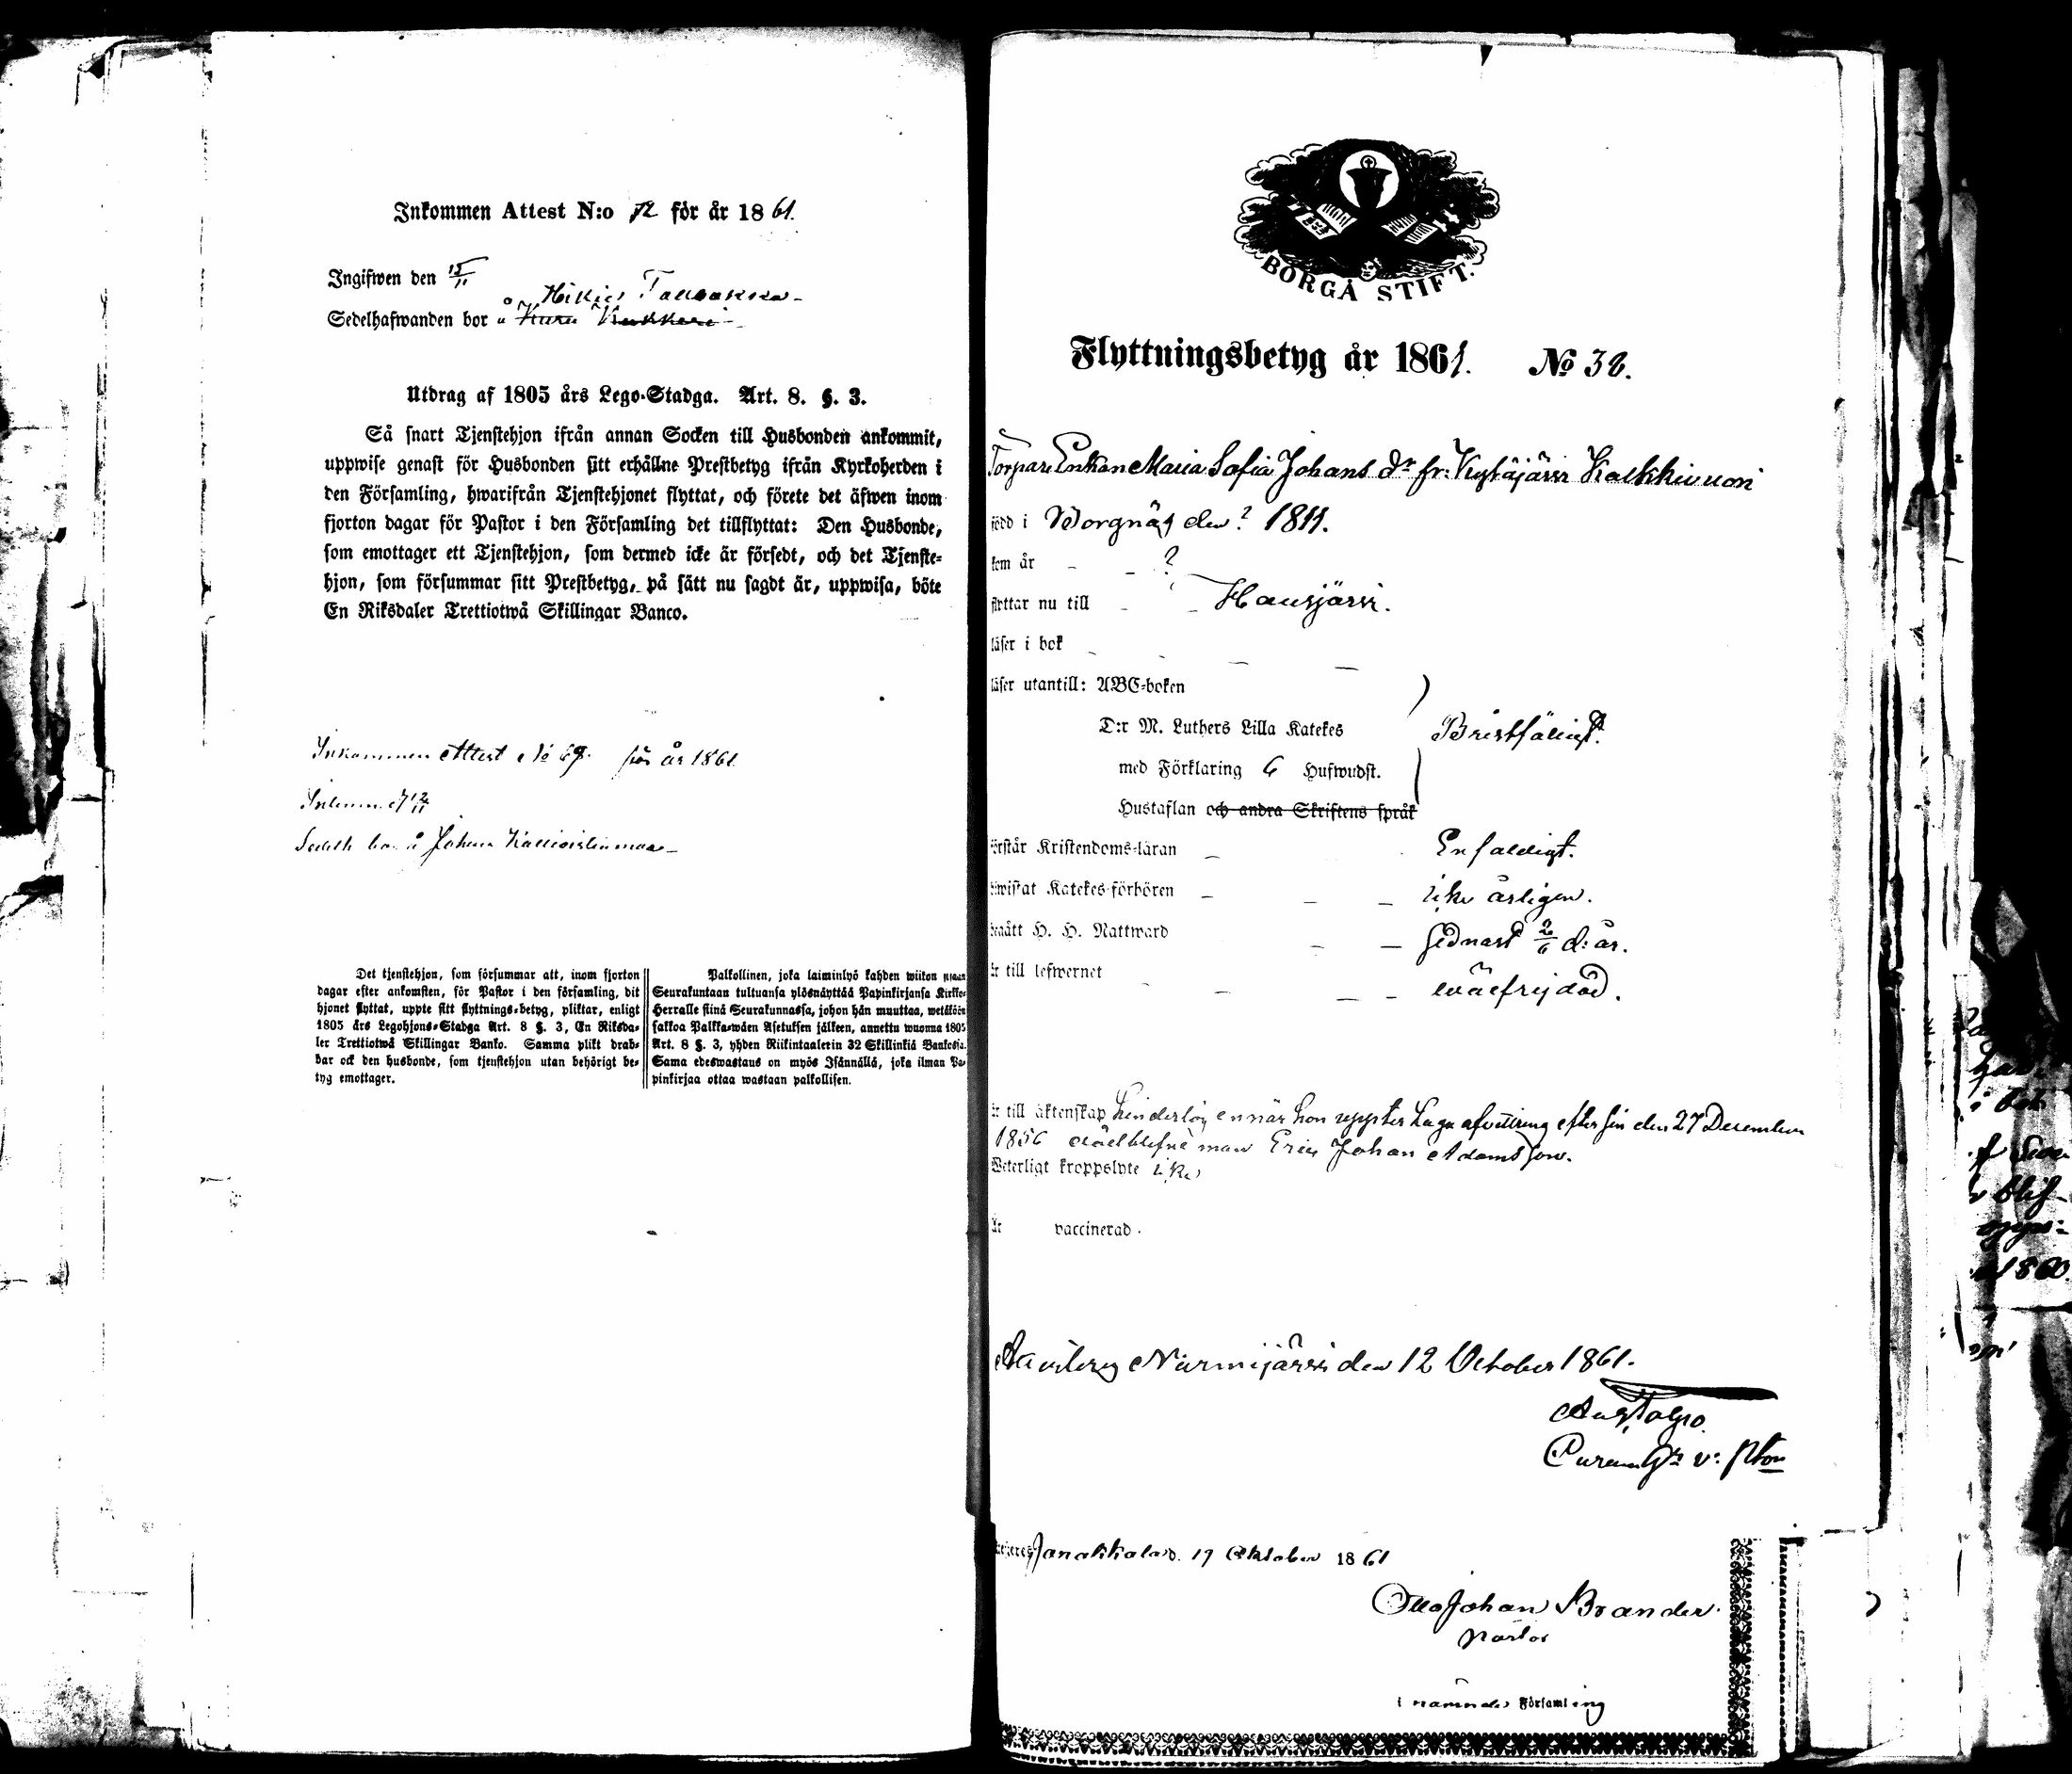 Inkommen Attest N:o 72 för år 1861.
Ingifwen den 15/11
Hikiä
Sedelhafwanden bor å
Utdrag af 1805 års Lego-Stadga. Art. 8. §. 3.
Så snart Tjenstehjon ifrån annan Socken till Husbonden ankommit,
uppwise genast för Husbonden sitt erhållne Prestbetyg ifrån Kyrkoherden i
den Församling, hwarifrån Tjenstehjonet flyttat, och förete det äfwen inom
fjorton dagar för Pastor i den Församling det tillflyttat: Den Husbonde,
som emottager ett Tjenstehjon, som dermed icke är försedt, och det Tjenste-
hjon, som försummar sitt Prestbetyg, på sätt nu sagdt är, uppwisa, böte
En Riksdaler Trettiotwå Skillingar Banco.
Inkommen Attest No 69. för år 1861
Inlemn. d 12/11
Sedelh bor å Johan
Det tjenstehjon, som försummar att, inom fjorton
dagar efter ankomsten, för Pastor i den församling, dit
hjonet flyttat, uppte sitt flyttnings-betyg, pliktar, enligt
1805 års Legohjons-Stadga Art. 8 §. 3, En Riksda-
ler Trettiotwå Skillingar Banko. Samma plikt drab-
bar ock den husbonde, som tjenstehjon utan behörigt be-
tyg emottager.
Palkollinen, joka laiminlyö kahden wiikon
Seurakuntaan tultuansa ylösnäyttää Papinkirjansa Kirkko-
Herralle siinä Seurakunnassa, johon hän muuttaa, wetäköön
sakkoa Palkka-wäen Asetuksen jälkeen, annettu wuonna 1805
Art. 8 §. 3, yhden Riikintaalerin 32 Skillinkiä Bankossa.
Sama edeswastaus on myös Isännällä, joka ilman Pa-
pinkirjaa ottaa wastaan palkollisen.
BORGÅ STIFT.
Flyttningsbetyg år 1861. No 38.
Torpare Enkan Maria Sofia Johans dr fr: Kytäjärvi Kalkkivuori
född i Worgnäs den ? 1811.
kom år - - ?
flyttar nu till - - Hausjärvi.
läser i bok - - - -
läser utantill: ABC-boken
D:r M. Luthers Lilla Katekes Bristfälligt.
med Förklaring 6 Hufwudst.
Hustaflan och andra Skriftens språk
förstår Kristendoms-läran - Enfaldigt.
bewistat Katekes-förhören - - - icke årligen.
begått H. H. Nattward - - sednast 2/6 d: år.
är till lefwernet - - - - wälfrejdad.
är till äktenskap hinderlös ennär hon uppter Laga afvittring efter sin den 27 December
1856 aflidne man Eric Johan Adamsson.
Weterligt kroppslyte icke
är vaccinerad.
Nurmijärvi den 12 October 1861.
v: Pstor
Janakkala d. 17 Oktober 1861
Otto Johan Brander
Pastor
i nämnde Församling